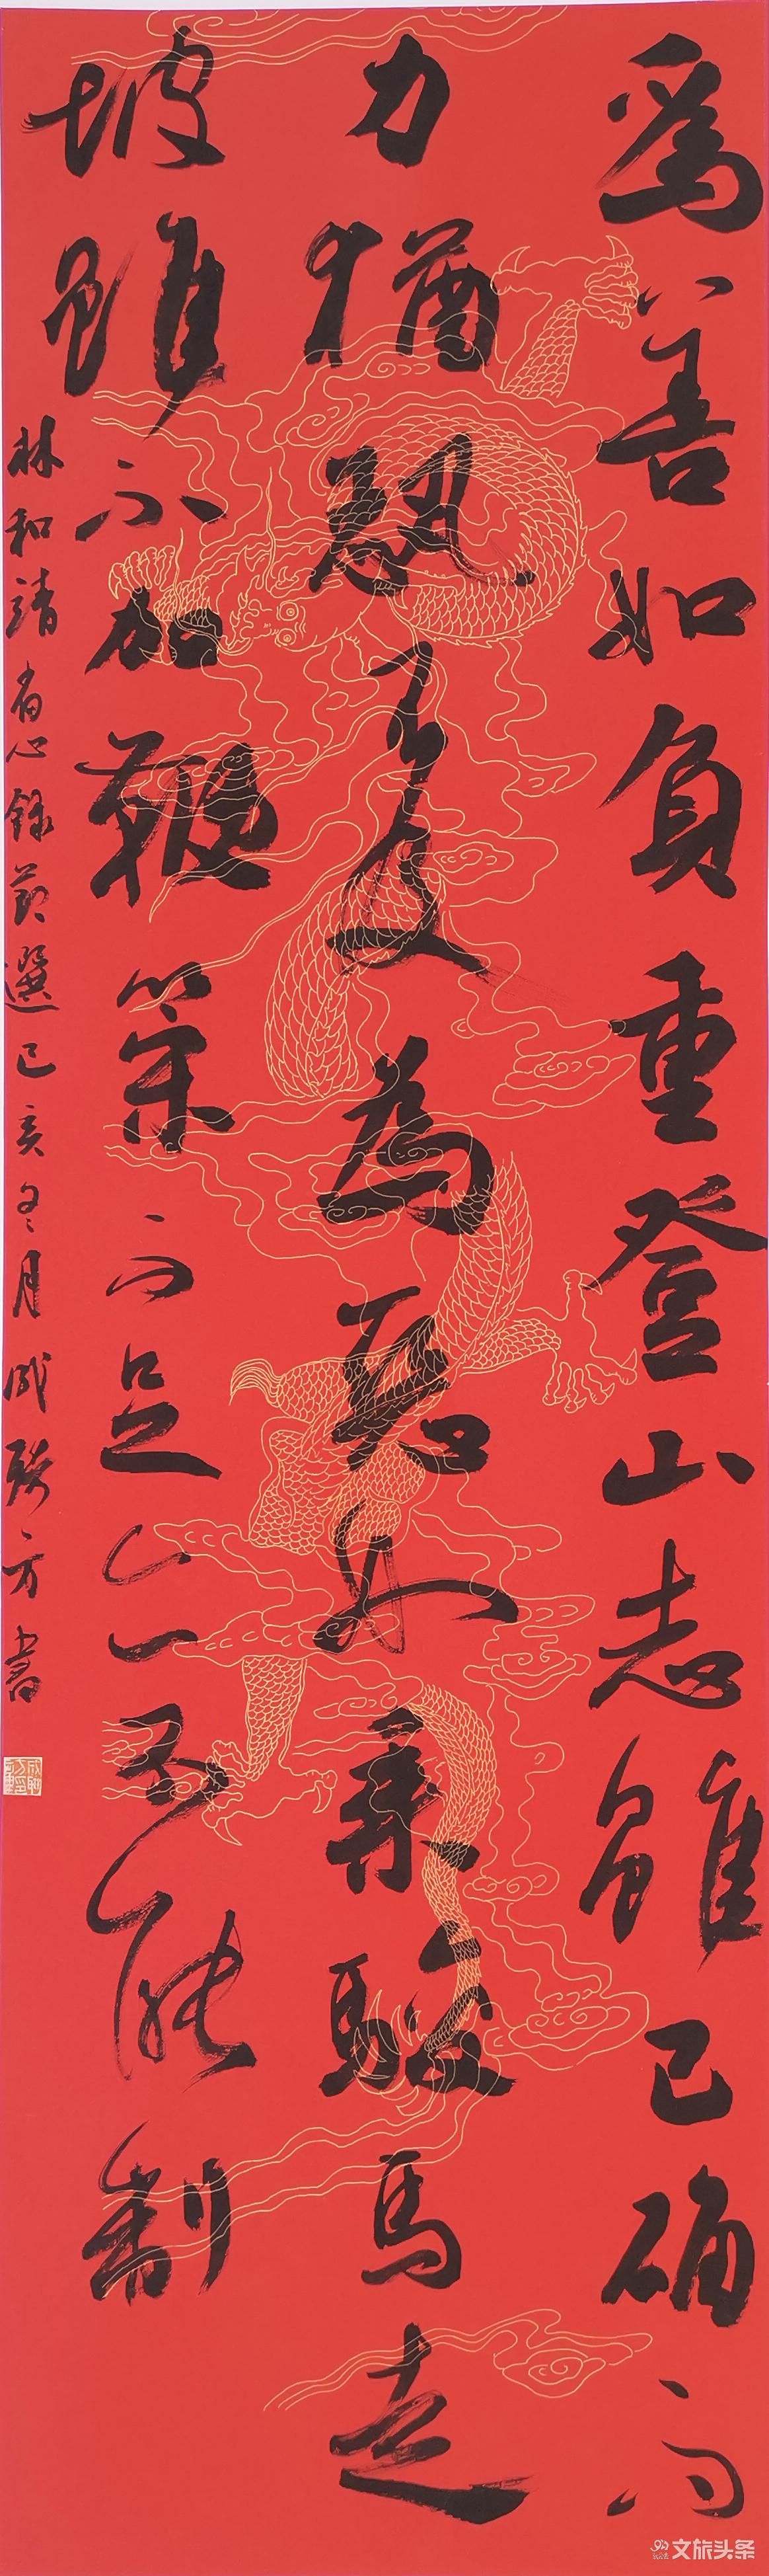 爲善如負重登山志雖已确而
力猶恐不及為惡如乘駿馬走
坡雖不加鞭策而足亦不能制
林和靖省心錄節選己亥冬月成聯方書
文旅头条